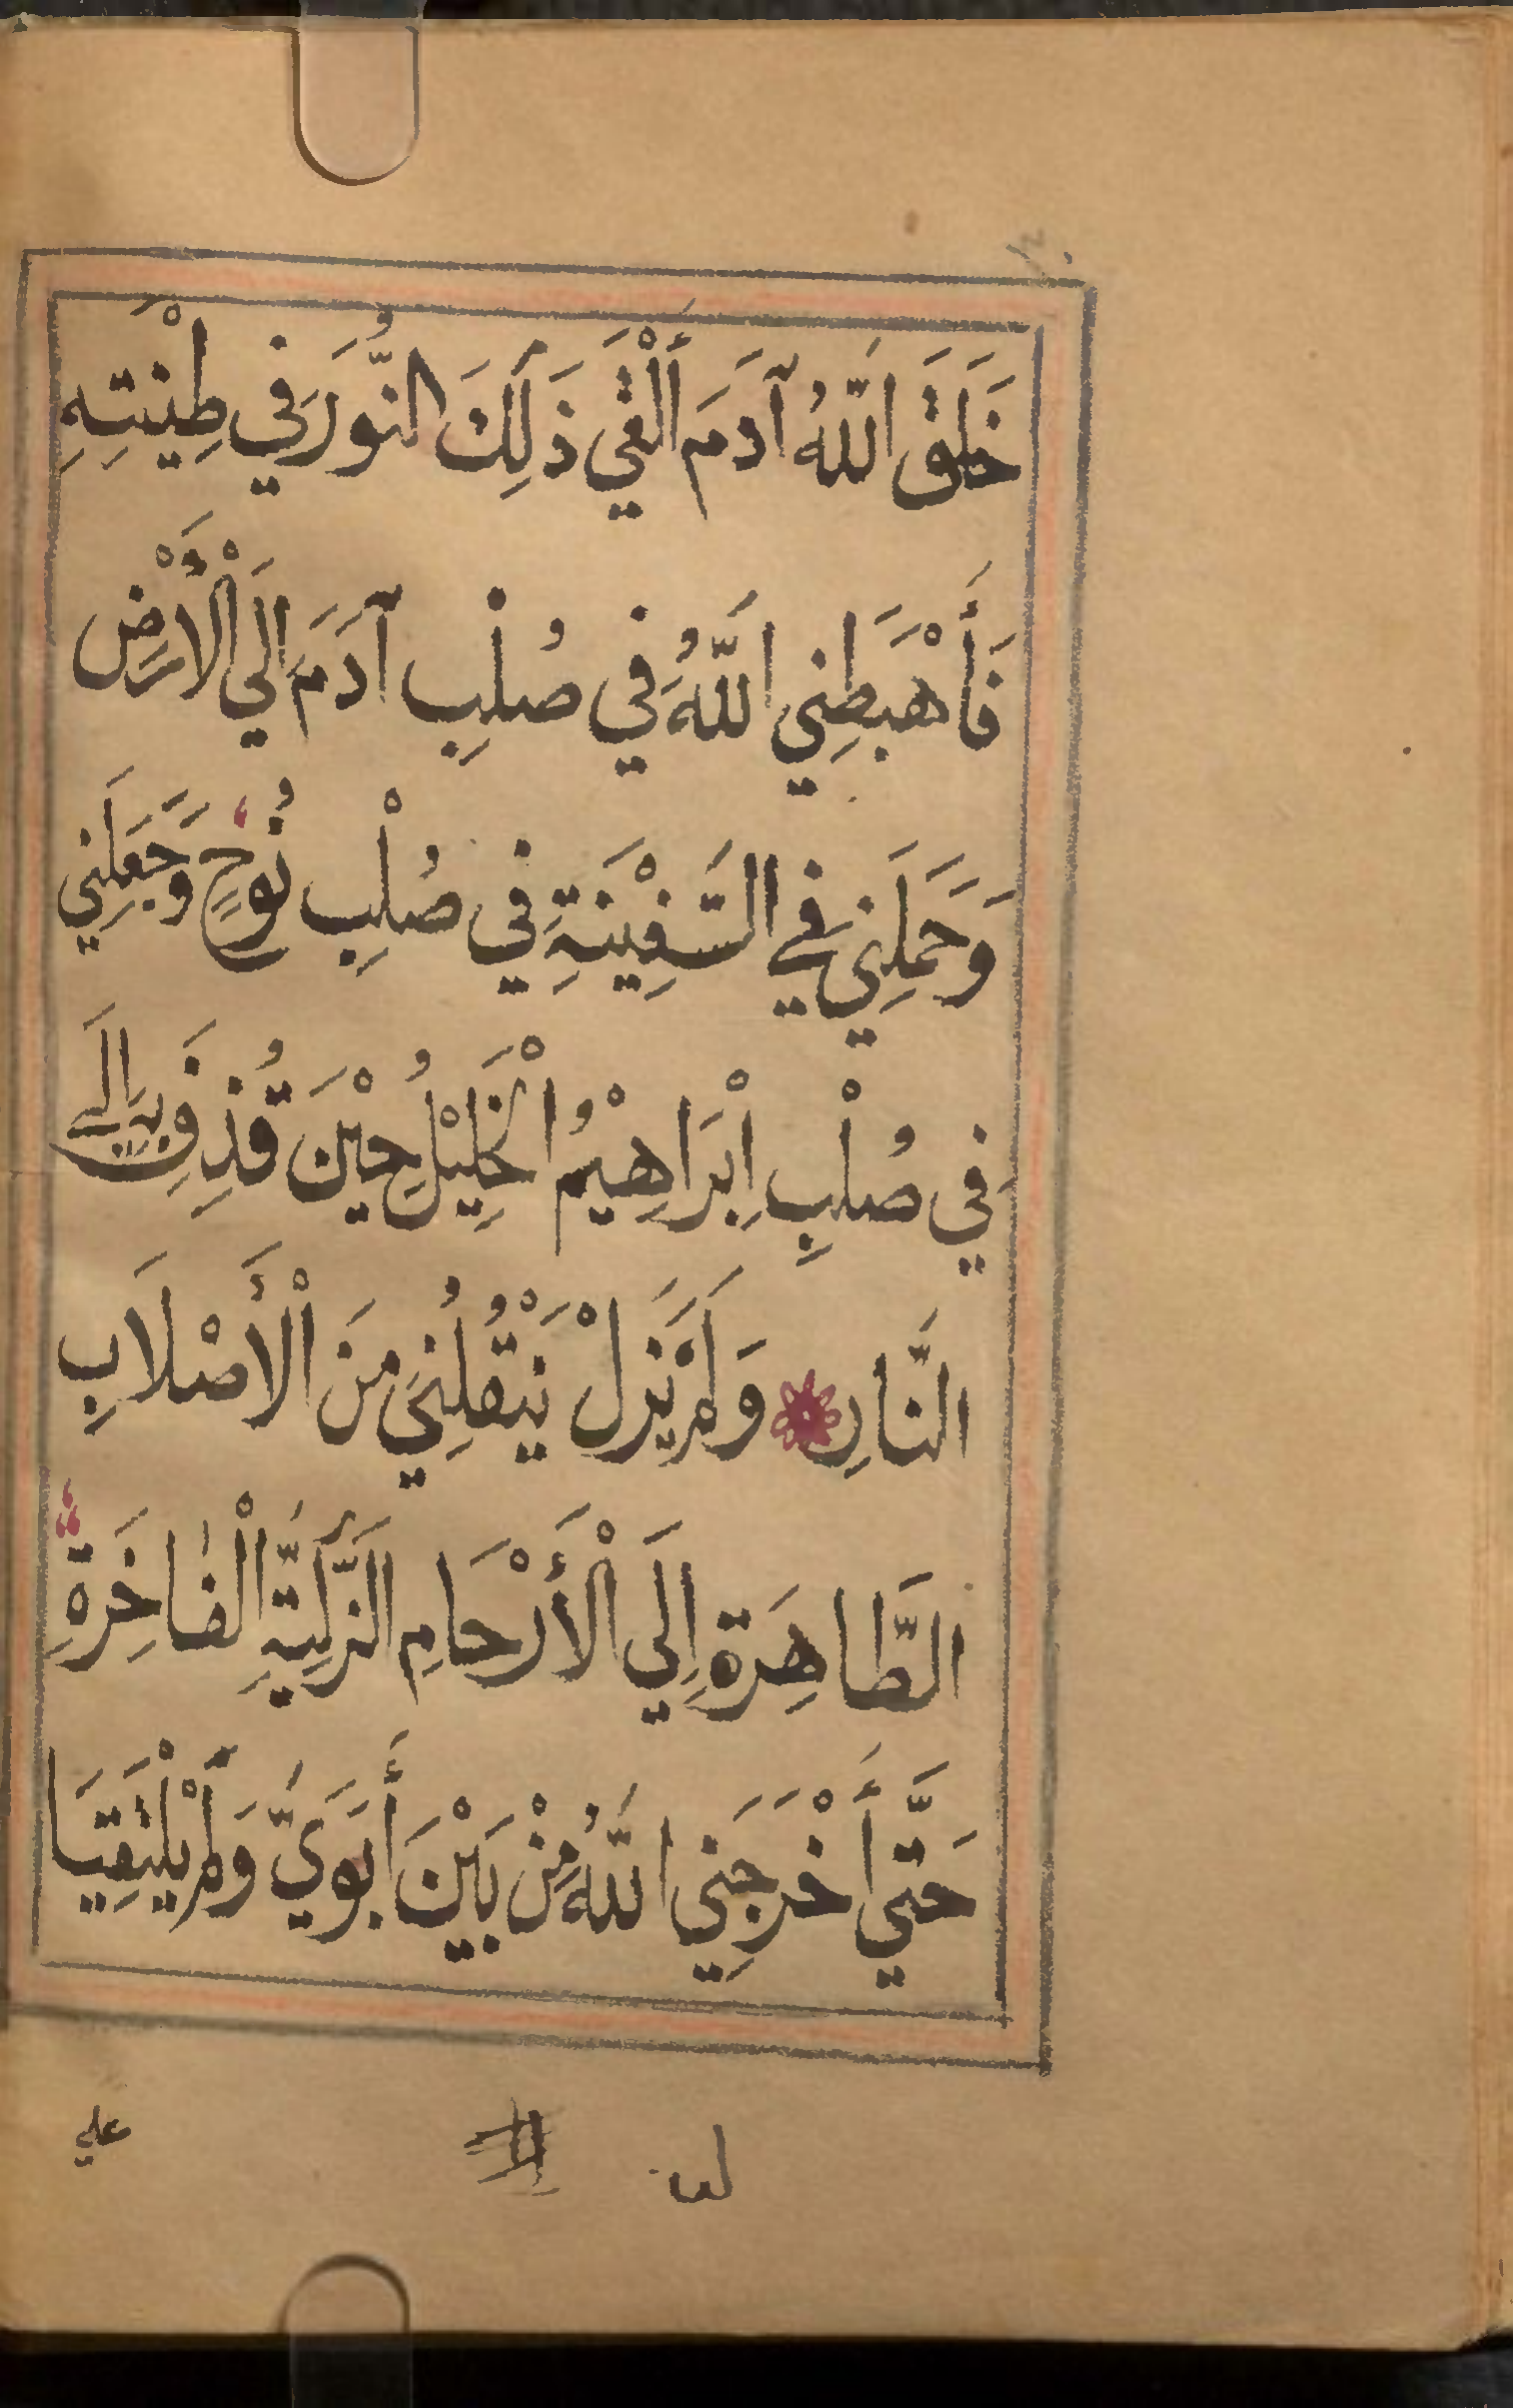 خَلَقَ اللّٰهُ آدَمَ أَلْقَي ذَلِكَ النُّوْرَ فِي طِيْنَتِهِ
فَأَهْبَطَنِي اللَّهُ فِي صُلْبِ آدَمَ اِلَي الْأَرْضِ
وَحَمَلَنِي فِي السَّفِيْنَةِ فِي صُلْبِ نُوْحٍ وَّجَعَلَنِي
فِي صُلْبِ اِبْرَاهِيْمُ الْخَلِيْلِ حِيْنَ قُذِفَ بِهِ اِلَي
النَّارِ وَلَمْ يَزَلْ يَنْقُلُنِيْ مِنَ الْأَصْلَابِ
الطَّاهِرَةِ اِلَي الْأَرْحَامِ الزَّكِيَّةِ الْفَاخِرَةِ
حَتَّي أَخْرَجَنِي اللّٰهُ مِنْ بَيْنَ أَبَوَيَّ وَلَمْ يَلْتَقِيَا
علي